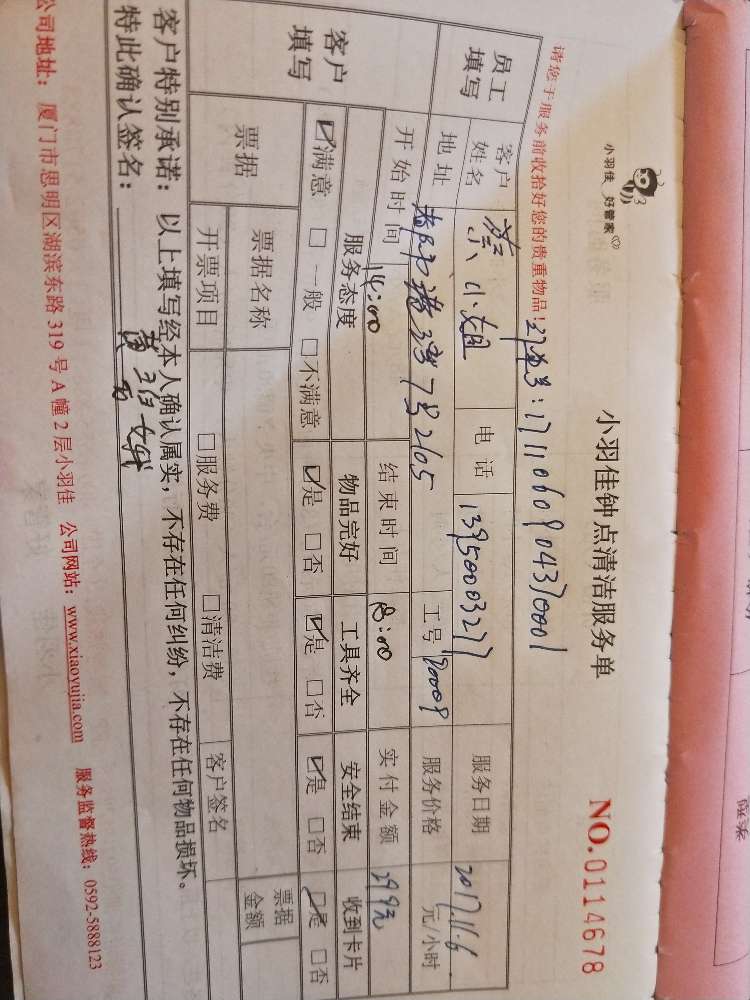 小羽佳 好管家
小羽佳钟点清洁服务单
NO.0114678
请您于服务前收拾好您的贵重物品！
订单号：1711060904370001
员工填写
客户姓名 蔡小姐 电话 13950003277 服务日期 2017.11.6
地址 7号2105 工号 90009 服务价格 元/小时
开始时间 14:00 结束时间 18:00 实付金额 299元
客户填写
服务态度 物品完好 工具齐全 安全结束 收到卡片
☑满意 □一般 □不满意 ☑是 □否 ☑是 □否 ☑是 □否 ☑是 □否
票据 票据名称 票据金额
开票项目 □服务费 □清洁费 客户签名
客户特别承诺：以上填写经本人确认属实，不存在任何纠纷，不存在任何物品损坏。
特此确认签名：
公司地址：厦门市思明区湖滨东路319号A幢2层小羽佳 公司网站：www.xiaoyujia.com 服务监督热线：0592-5888123